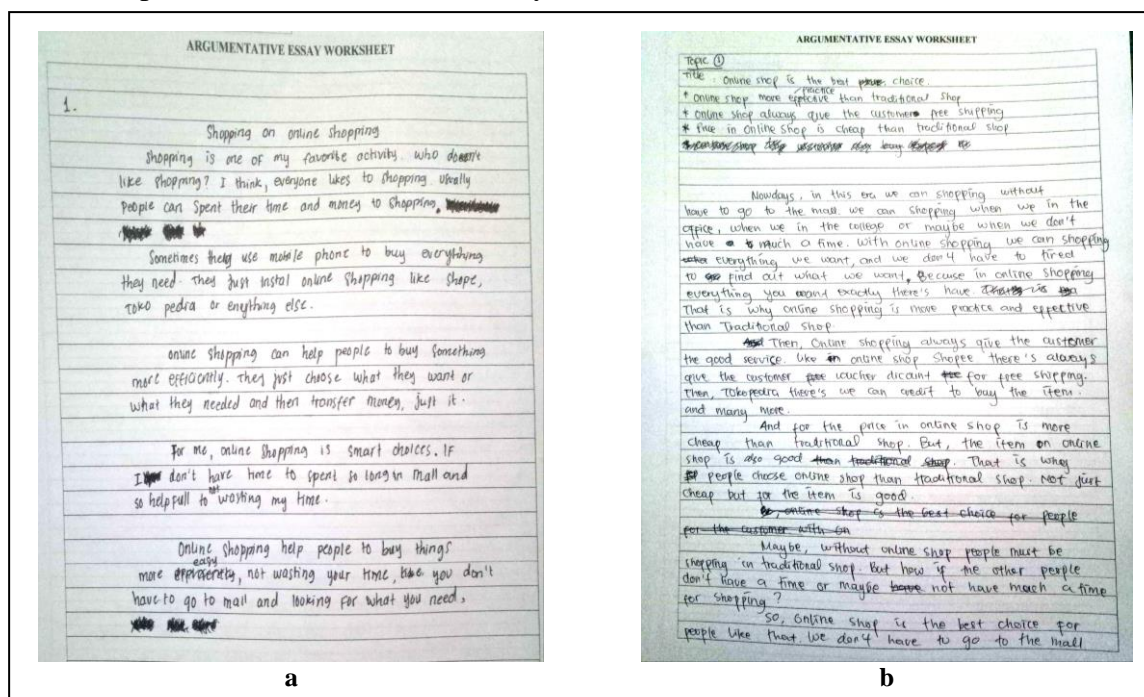 ARGUMENTATIVE ESSAY WORKSHEET
1.
Shopping on online shopping
Shopping is one of my favorite activity. Who doesn't
like shopping? I think, everyone likes to shopping. Usually
people can spent their time and money to shopping.
Sometimes they use mobile phone to buy everything
they need. They just instal online shopping like shope,
Toko pedra or enything else.
online shopping can help people to buy something
more efficiently. They just choose what they want or
what they needed and then transfer money, just it.
For me, online shopping is smart choices. IF
I don't have time to spent so long in mall and
so helpfull to not wasting my time.
Online shopping help people to buy things
more easy, not wasting your time, like you don't
have to go to mall and looking for what you need,
a
ARGUMENTATIVE ESSAY WORKSHEET
Topic ①
Title : Online shop is the best choice.
* online shop more practice than traditional shop
* online shop always give the customer free shipping
* Price in online shop is cheap than traditional shop
Nowdays, in this era we can shopping without
have to go to the mall. we can shopping when we in the
office, when we in the college or maybe when we don't
have much a time. With online shopping we can shopping
everything we want, and we don't have to tired
to find out what we want, Because in online shopping
everything you want exactly there's have.
That is why online shopping is more practice and effective
than Traditional shop.
Then, Online shopping always give the customer
the good service. Like online shop Shopee there's always
give the customer voucher dicaint for free shipping.
Then, Tokopedia there's we can credit to buy the item.
and many more.
And for the price in online shop is more
cheap than traditional shop. But, the item on online
shop is also good than traditional shop. That is why
people choose online shop than traditional shop. Not just
cheap but for the item is good.
So, online shop is the best choice for people
for the customer with
Maybe, without online shop people must be
shopping in traditional shop. But how if the other people
don't have a time or maybe not have mach a time
for shopping?
So, online shop is the best choice for
people like that. we don't have to go to the mall
b